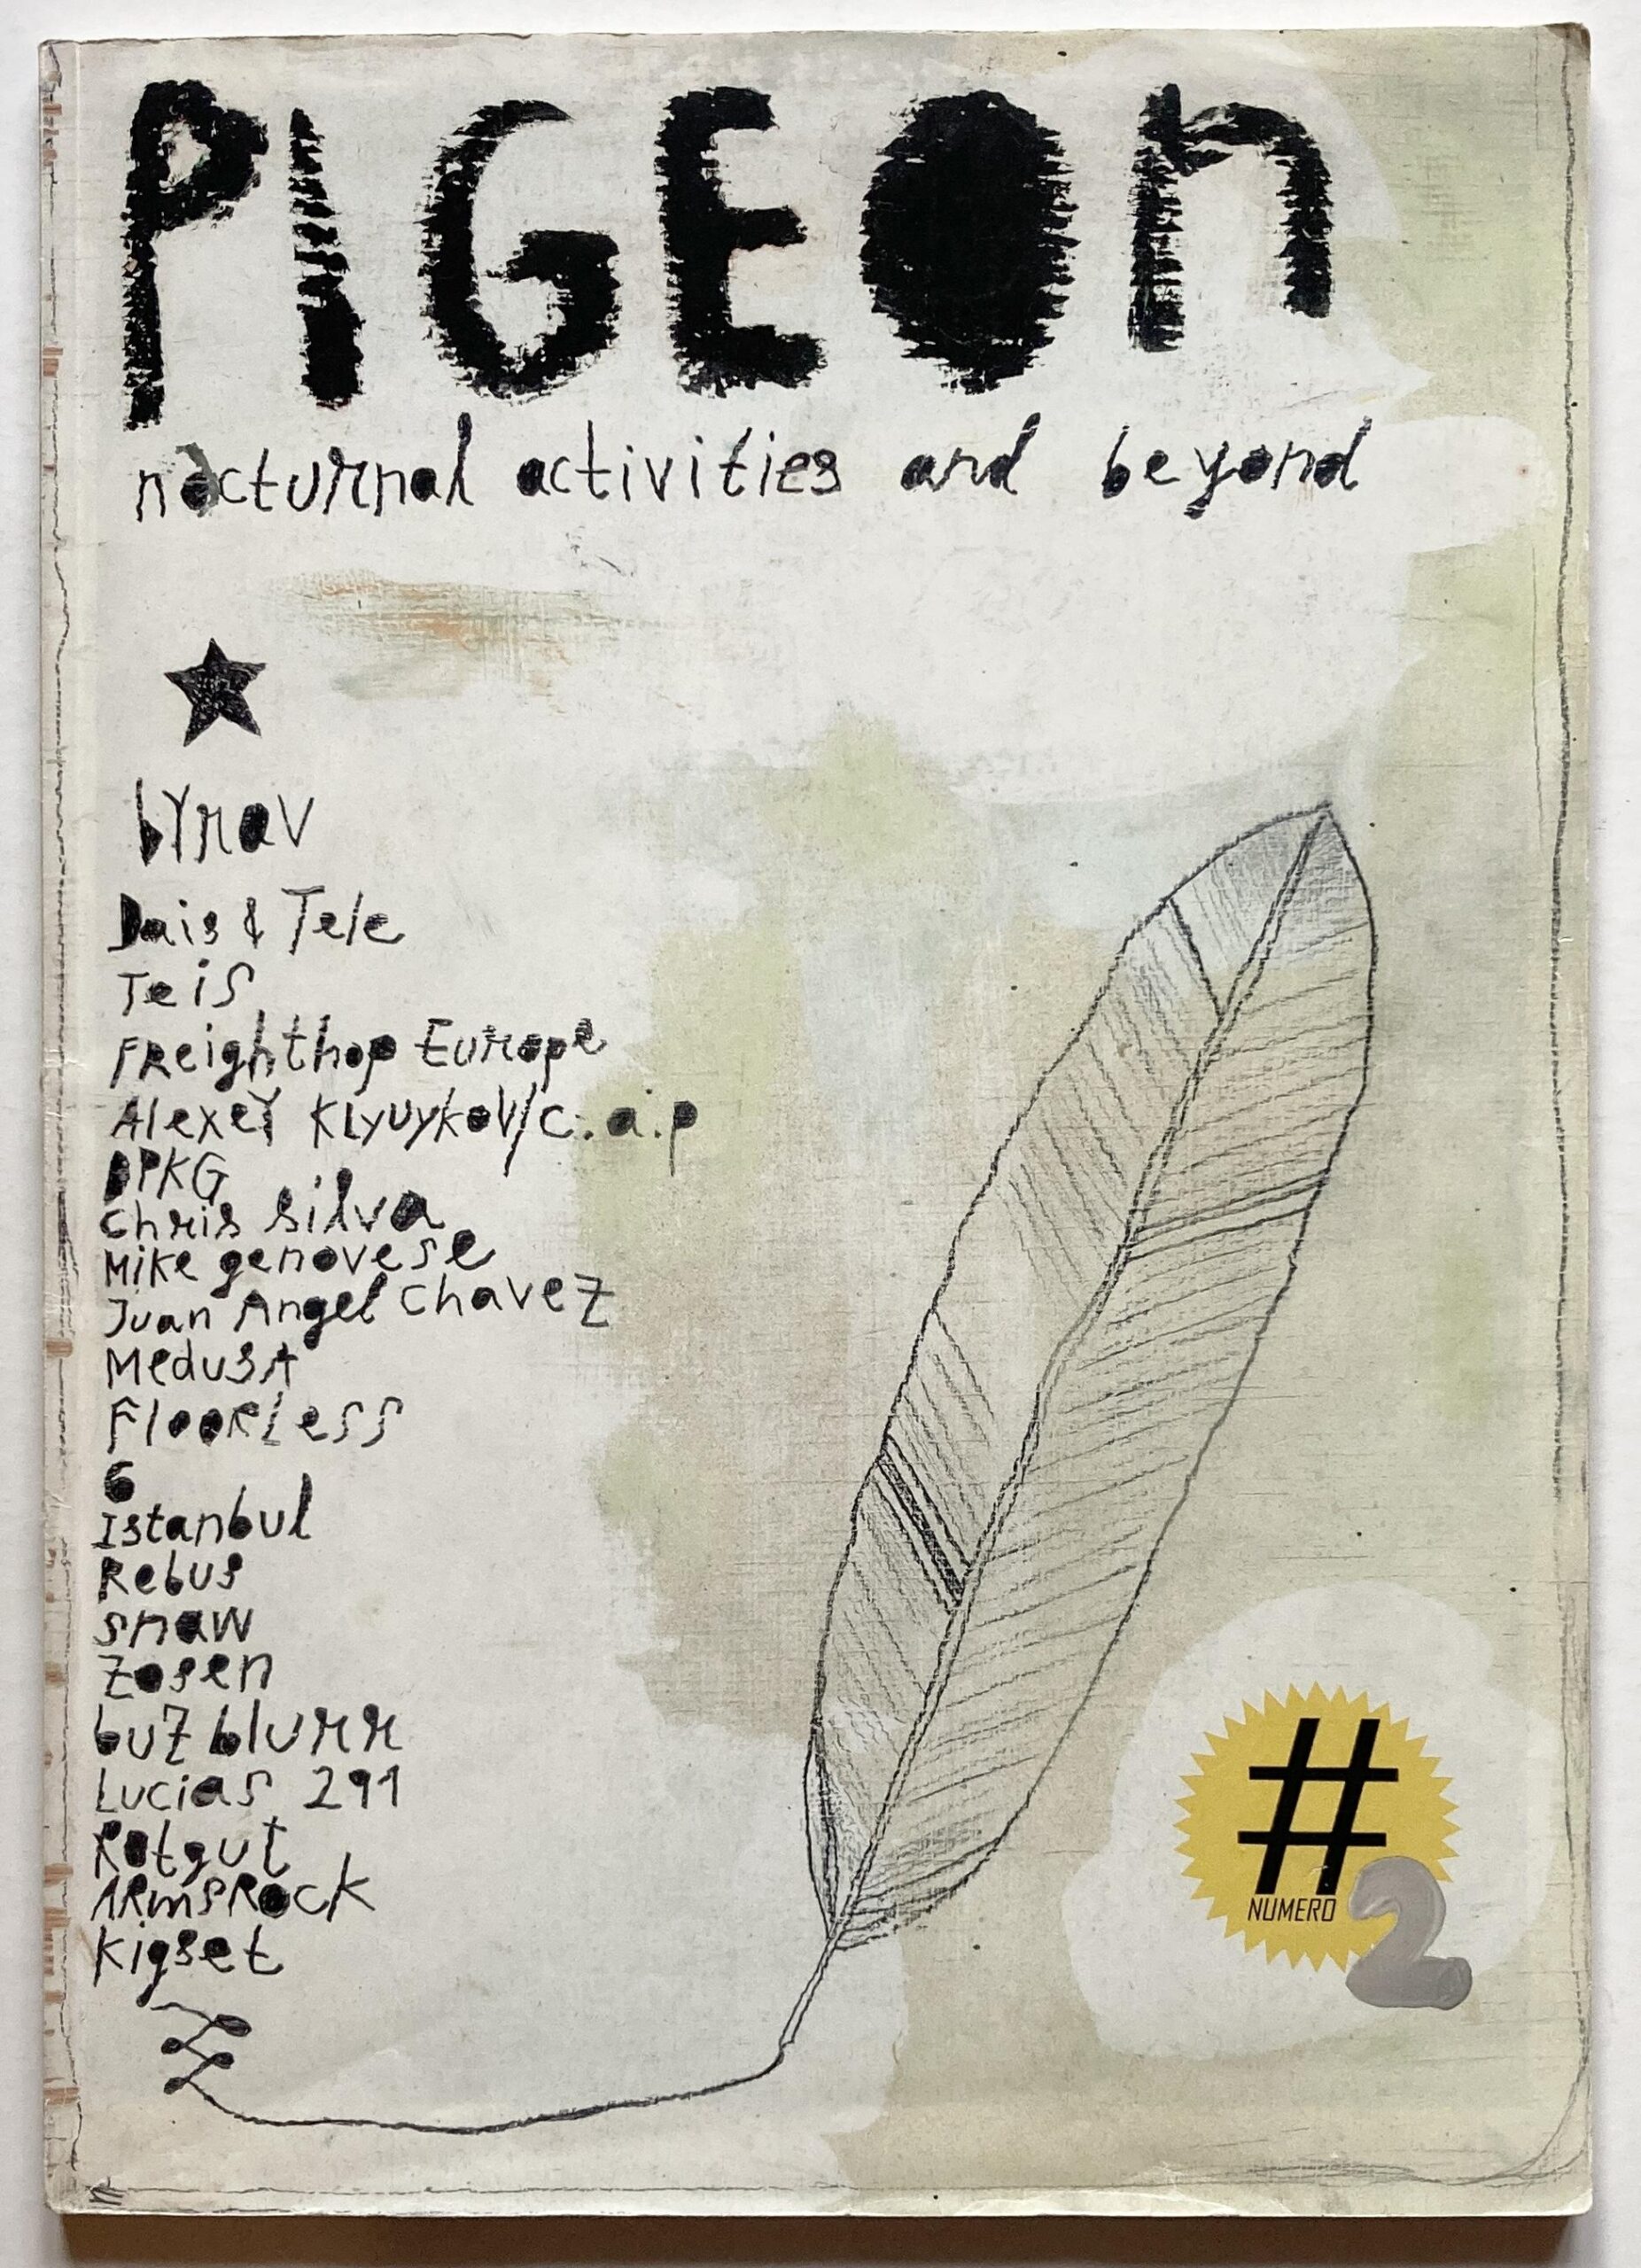 PIGEOn
nocturnal activities and beyond
byrav
Dais & Tele
Teis
FReighthop Europe
Alexeÿ Klyuykov/c.a.p
DPKG
chris silva
Mike genovese
Juan Angel chavez
MedusA
FlooRLess
6
Istanbul
Rebus
snaw
Zosen
buZ blurr
Lucias 291
Rotgut
ARmsRock
kigset
#
NUMERO 2